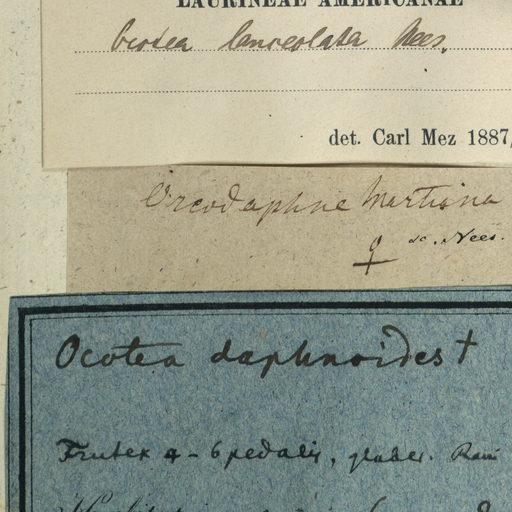 LAURINEAE AMERICANAE
Ocotea lanceolata Nees.
det. Carl Mez 1887
Oreodaphne Martiana
♀ sc. Nees.
Ocotea daphnoides †
Frutex 4-6 pedalis, glaber. Rami